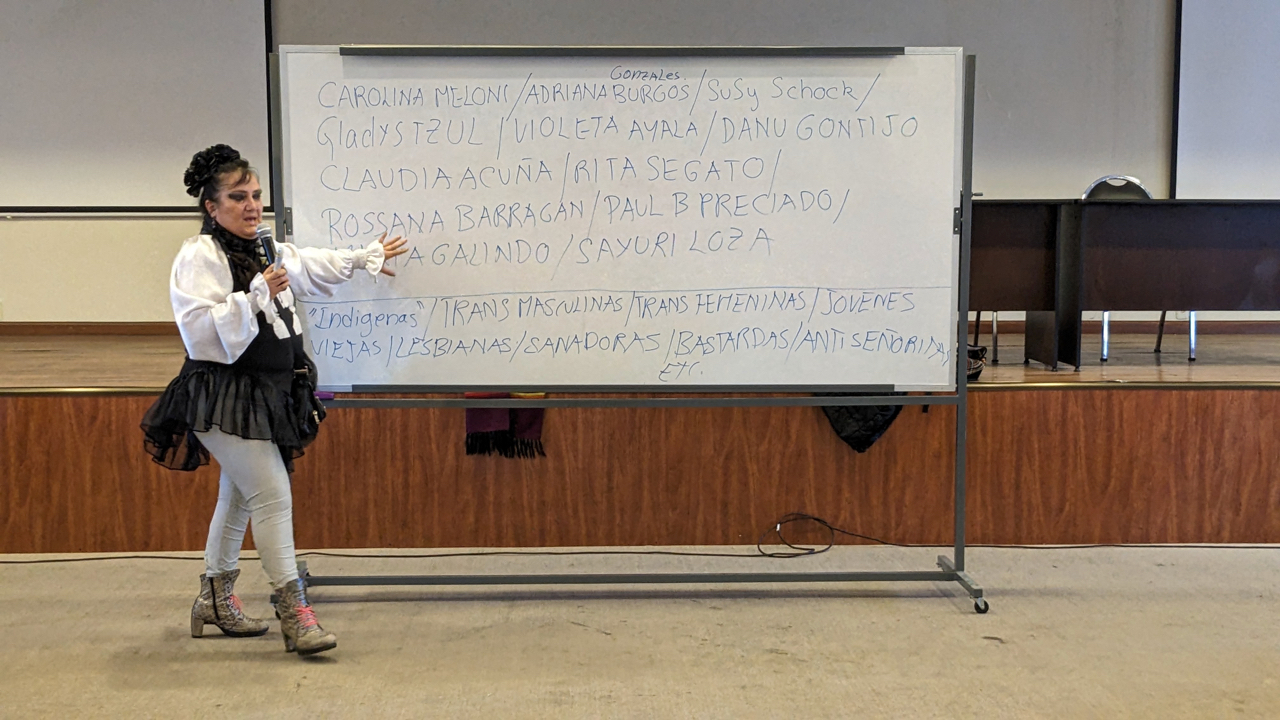 Gonzales.
CAROLINA MELONI / ADRIANA BURGOS / SuSy Schock /
GladyS TZUL / VIOLETA AYALA / DANU GONTIJO
CLAUDIA ACUÑA / RITA SEGATO /
ROSSANA BARRAGÁN / PAUL B PRECIADO /
GALINDO / SAYURI LOZA
"Indigenas" / TRANS MASCULINAS / TRANS FEMENINAS / JOVENES
VIEJAS / LESBIANAS / SANADORAS / BASTARDAS / ANTI SEÑORIDAS
ETC.